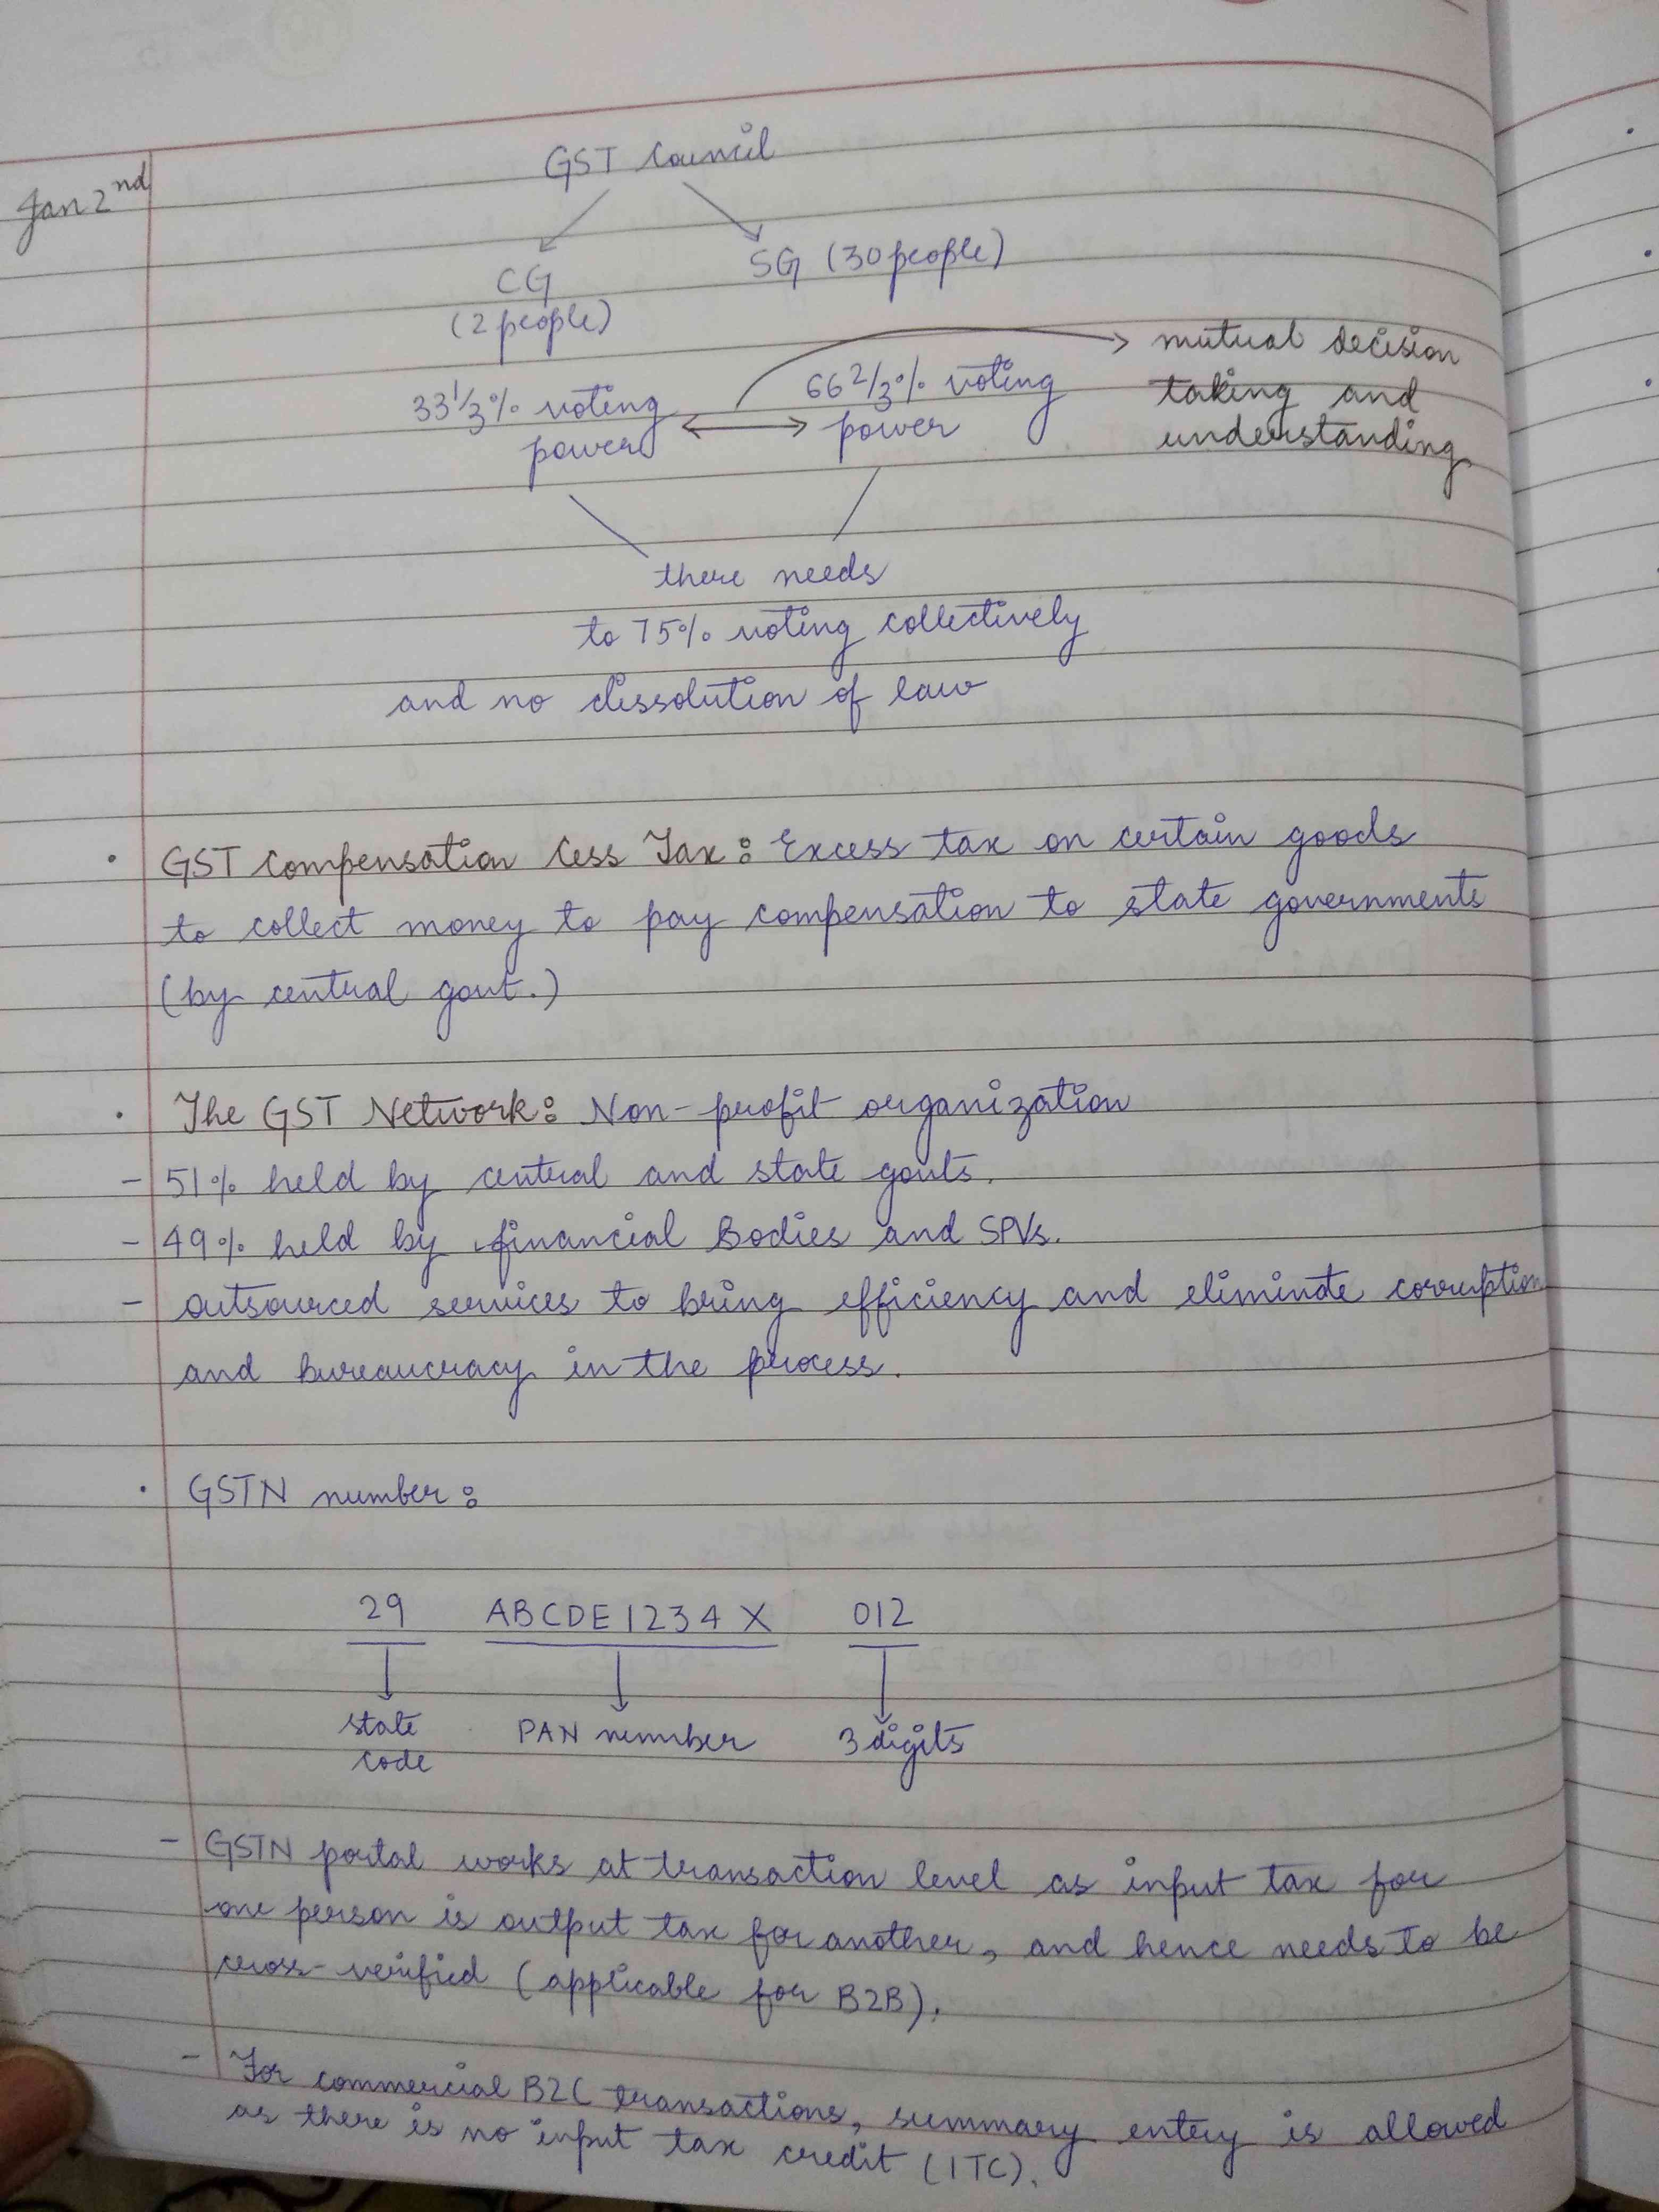 Jan 2nd
GST Council
CG
(2 people)
SG (30 people)
33 1/3% voting
power
66 2/3% voting
power
mutual decision
taking and
understanding
there needs
to 75% voting collectively
and no dissolution of law
• GST Compensation Cess Tax: Excess tax on certain goods
to collect money to pay compensation to state governments
(by central govt.)
• The GST Network: Non-profit organization
- 51% held by central and state govts.
- 49% held by financial Bodies and SPVs.
- outsourced services to bring efficiency and eliminate corruption
and bureaucracy in the process.
• GSTN number:
29 ABCDE1234X 012
state
code
PAN number
3 digits
- GSTN portal works at transaction level as input tax for
one person is output tax for another, and hence needs to be
cross-verified (applicable for B2B).
- For commercial B2C transactions, summary entry is allowed
as there is no input tax credit (ITC).